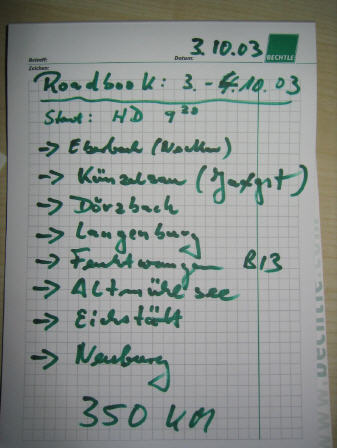 3.10.03
BECHTLE
Betreff: Datum:
Zeichen:
Roadbook: 3.-4.10.03
Start: HD 9³⁰
→ Eberbach (Neckar)
→ Künzelsau (Jaxgst)
→ Dörzbach
→ Langenburg
→ Feuchtwangen B13
→ Altmühlsee
→ Eichstätt
→ Neuburg
350 KM
www.bechtle.com